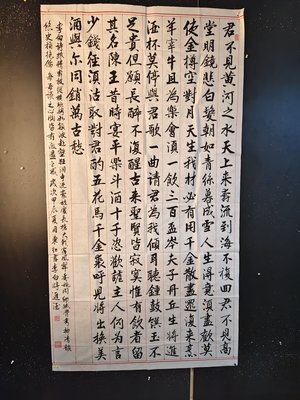 君不見黃河之水天上來奔流到海不復回君不見高
堂明鏡悲白髮朝如青絲暮成雪人生得意須盡歡莫
使金樽空對月天生我材必有用千金散盡還復來烹
羊宰牛且為樂會須一飲三百盃岑夫子丹丘生將進
酒杯莫停與君歌一曲請君為我傾耳聽鐘鼓饌玉不
足貴但願長醉不復醒古來聖賢皆寂寞惟有飲者留
其名陳王昔時宴平樂斗酒十千恣歡謔主人何為言
少錢徑須沽取對君酌五花馬千金裘呼兒將出換美
酒與爾同銷萬古愁